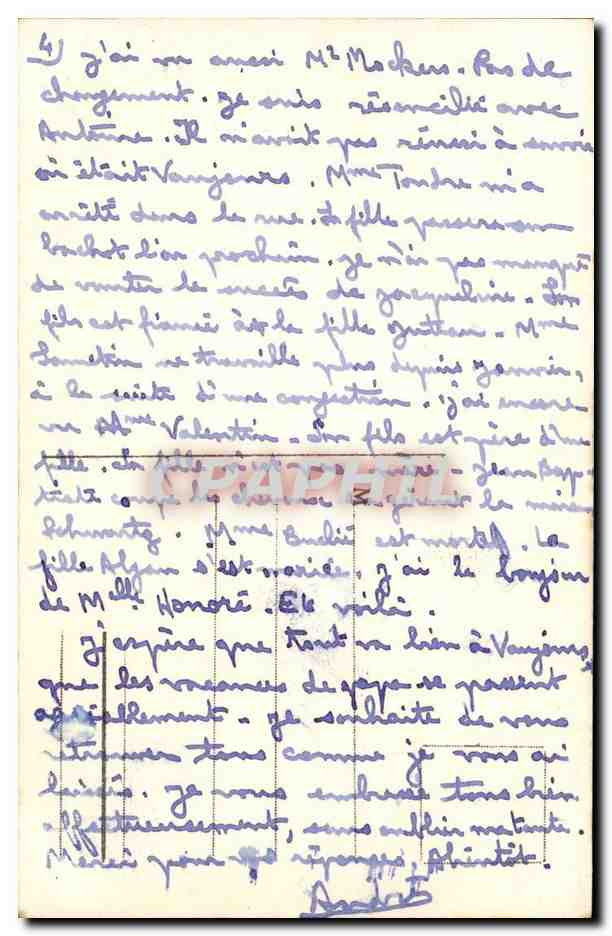 4) J'ai vu aussi Mr Mockers. Pas de
changement. Je suis réconcilié avec
Antoine. Il n'avait pas réussi à savoir
où était Vaujours. Mme Tondre m'a
arrêté dans la rue. Sa fille passera son
bachot l'an prochain. Je n'ai pas manqué
de vanter le succès de Jacqueline. Son
fils est fiancé à la fille
Mme
ne travaille plus depuis Janvier,
à la suite d'une congestion. J'ai encore
vu Mme Valentin. Son fils est père d'une
fille. Sa fille n'est pas - Jean Bap-
tiste coupe les cheveux la
Schwartz. Mme est morte. La
fille s'est mariée. J'ai le bonjour
de Melle Honoré. Et voilà.
J'espère que tout va bien à Vaujours,
que les vacances de papa se passent
agréablement. Je souhaite de vous
retrouver tous comme je vous ai
laissés. Je vous embrasse tous bien
affectueusement, sans oublier ma tante.
Merci pour vos réponses. A bientôt.
André
CPAPHIL